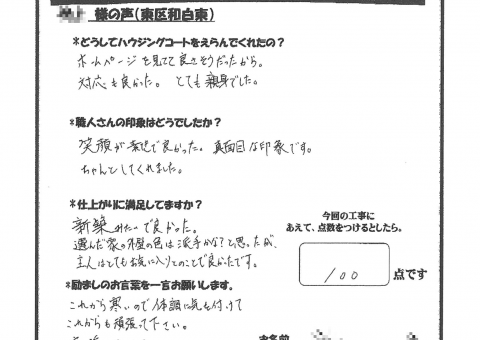 様の声(東区和白東)
*どうしてハウジングコートをえらんでくれたの?
ホームページを見てて良さそうだったから。
対応も良かった。 とても親身でした。
*職人さんの印象はどうでしたか?
笑顔が素敵で良かった。真面目な印象です。
ちゃんとしてくれました。
*仕上がりに満足してますか?
新築みたいで良かった。
選んだ家の外壁の色は派手かな?と思ったが、
主人はとてもお気に入りとのことで良かったです。
今回の工事に
あえて、点数をつけるとしたら。
100 点です
*励ましのお言葉を一言お願いします。
これから寒いので体調に気を付けて
これからも頑張って下さい。
お名前